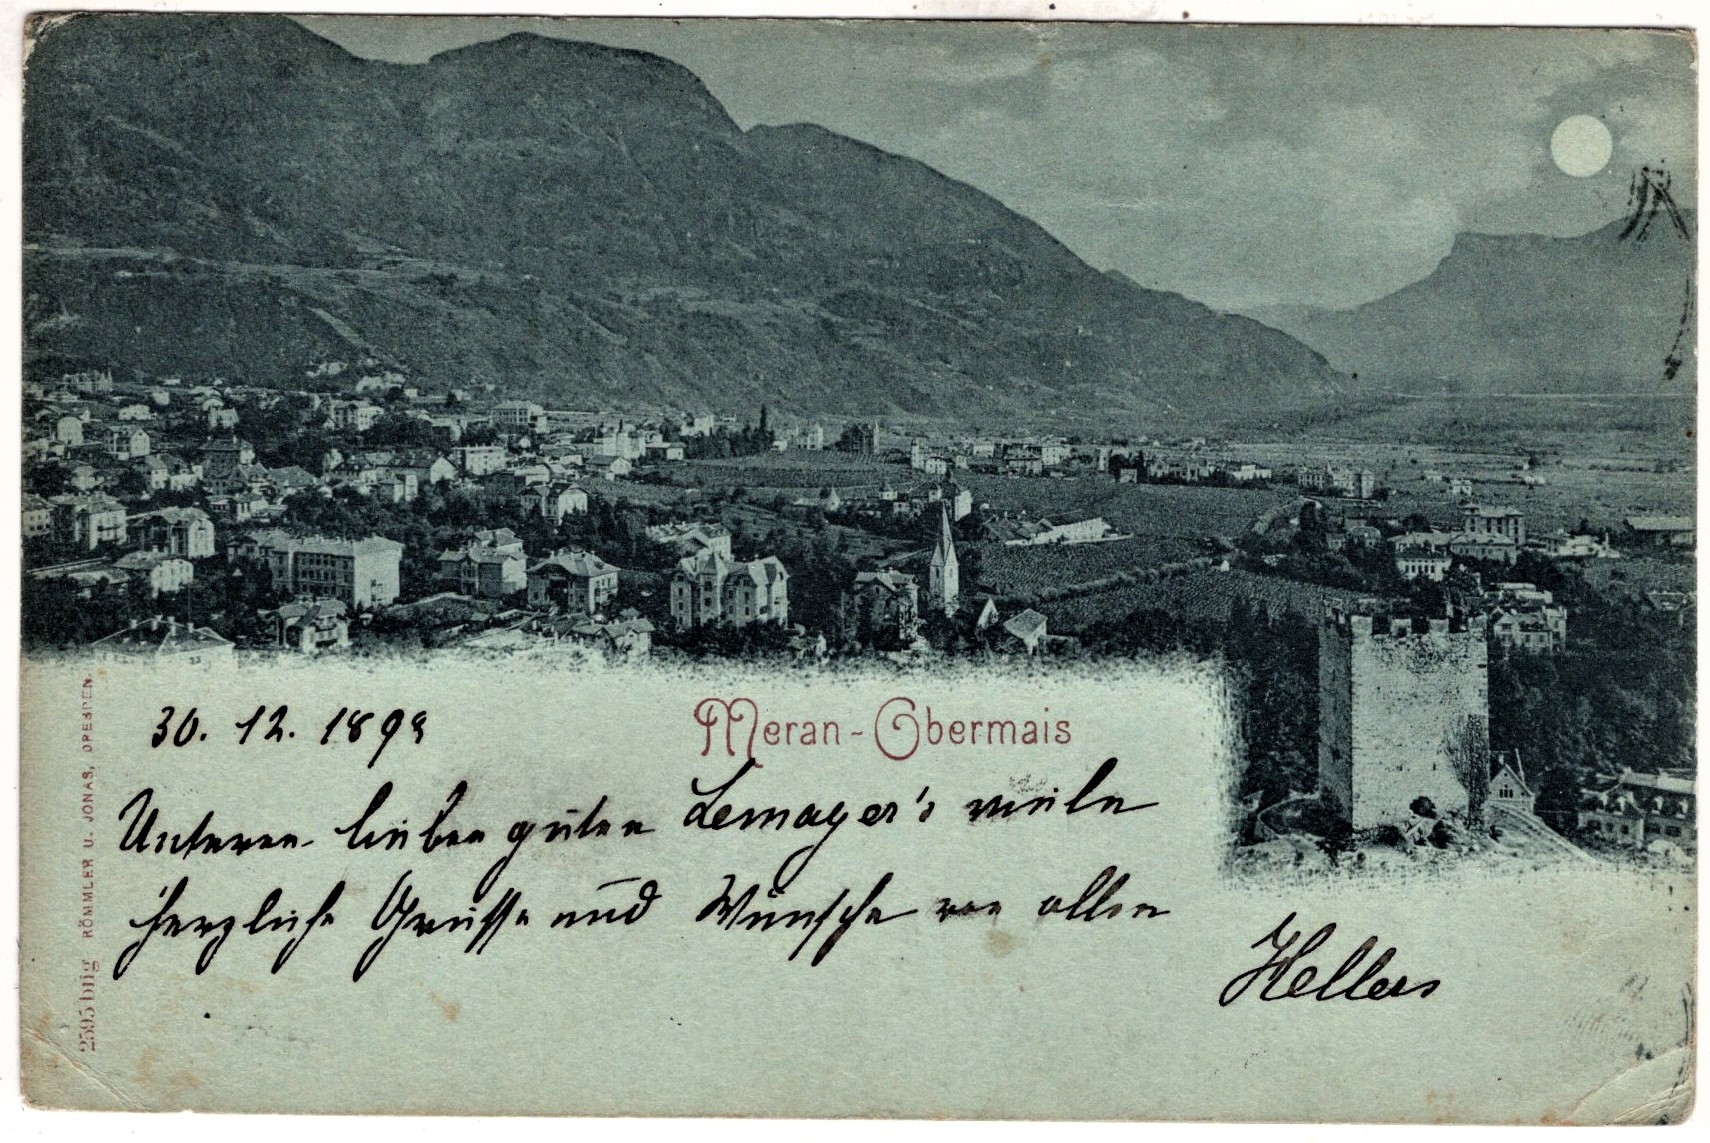 30. 12. 1899
Meran-Obermais
Unseren lieben guten Lemayer's viele
herzliche Grüsse und Wünsche von allen
Hellers
2595 blig RÖMMLER U. JONAS, DRESDEN.